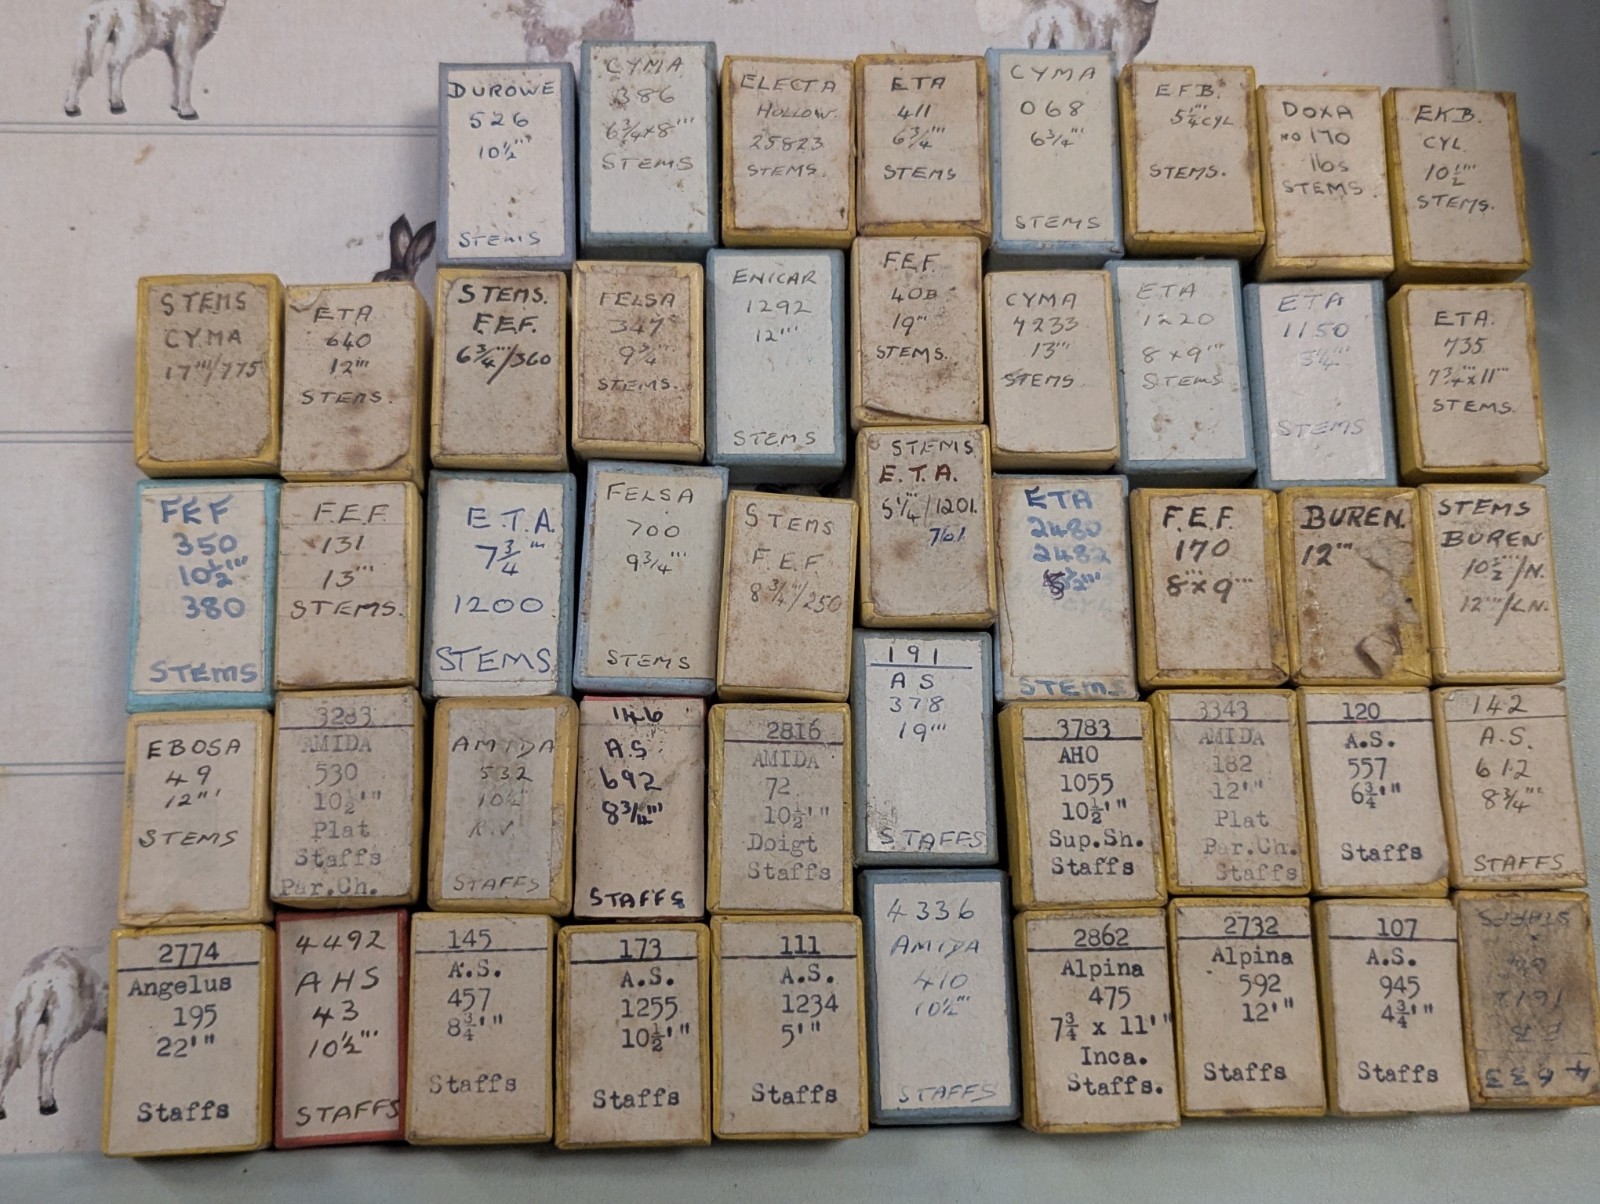 DUROWE
526
10½'''
STEMS
CYMA
386
6¾x8'''
STEMS
ELECTA
HOLLOW.
25823
STEMS.
ETA
411
6¾'''
STEMS
CYMA
068
6¾'''
STEMS
E F B.
5¼''' CYL
STEMS.
DOXA
NO 170
16s
STEMS
EKB.
CYL.
10½'''
STEMS.
STEMS
CYMA
17'''/775
ETA
640
12'''
STEMS.
STEMS.
F.E.F.
6¾'''/360
FELSA
347
9¾'''
STEMS.
ENICAR
1292
12'''
STEMS
F.E.F.
40B
19'''
STEMS.
CYMA
4233
13'''
STEMS
ETA
1220
8 x 9'''
STEMS
ETA
1150
STEMS
ETA.
735
7¾'''x11'''
STEMS.
FEF
350
10½'''
380
STEMS
F.E.F
131
13'''
STEMS.
E.T.A.
7¾'''
1200
STEMS
FELSA
700
9¾'''
STEMS
STEMS
F.E.F
8¾'''/250
STEMS
E.T.A.
5¼'''/1201.
761
ETA
2480
2482
STEMS
F.E.F.
170
8'''x9'''
BUREN.
12'''
STEMS
BUREN
10½'''/N.
12'''/LN.
EBOSA
49
12'''
STEMS
3283
AMIDA
530
10½'"
Plat
Staffs
Par.Ch.
AMIDA
532
10½
R.V.
STAFFS
146
A.S.
692
8¾'''
STAFFS
2816
AMIDA
72
10½'"
Doigt
Staffs
191
A S
378
19'''
STAFFS
3783
AHO
1055
10½'"
Sup.Sh.
Staffs
3343
AMIDA
182
12'"
Plat
Par.Ch.
Staffs
120
A.S.
557
6¾'"
Staffs
142
A.S.
612
8¾'''
STAFFS
2774
Angelus
195
22'"
Staffs
4492
AHS
43
10½'''
STAFFS
145
A.S.
457
8¾'"
Staffs
173
A.S.
1255
10½'"
Staffs
111
A.S.
1234
5'"
Staffs
4336
AMIDA
410
10½'''
STAFFS
2862
Alpina
475
7¾ x 11'"
Inca.
Staffs.
2732
Alpina
592
12'"
Staffs
107
A.S.
945
4¾'"
Staffs
4633
STAFFS